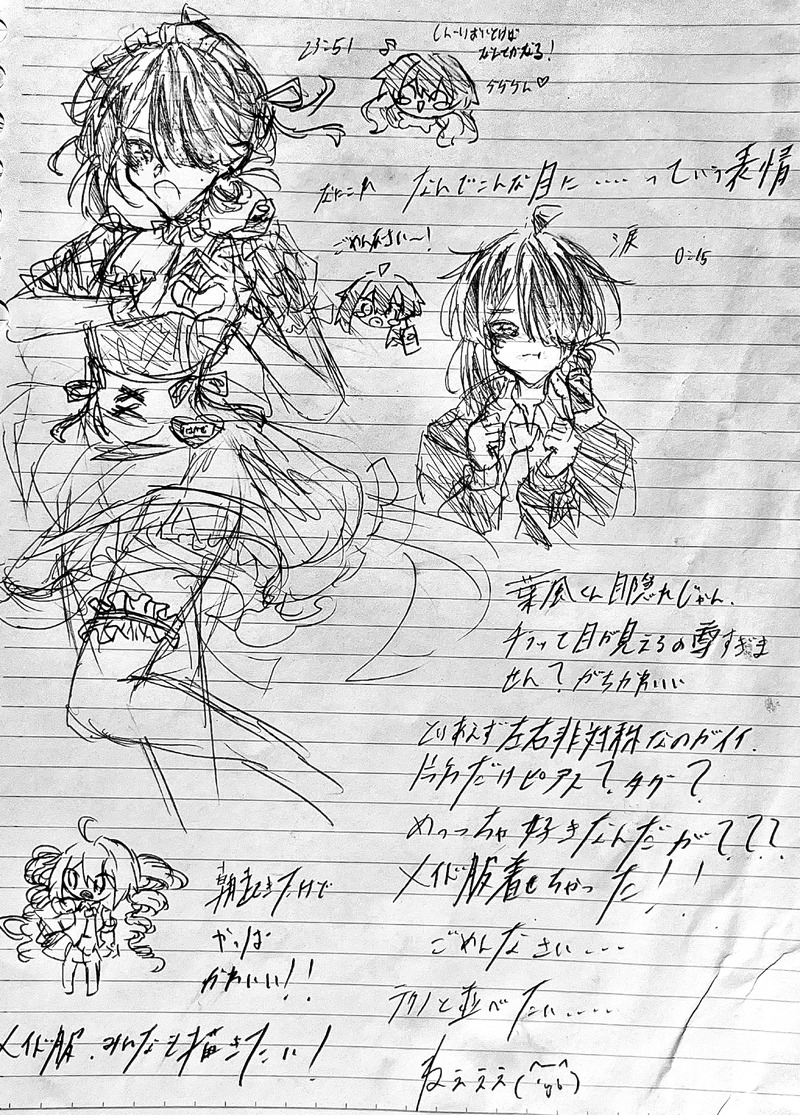 23:51
♪
しんーりおいとけば
なんとかなる!
ケケケん♡
なにこれ なんでこんな目に……っていう表情
ごめんなさい〜!
涙 0:15
はかぜ
葉風くん目隠れじゃん.
チラって目が見えるの尊すぎま
せん?がちかわいい
とりあえず左右非対称なのがイイ.
片方だけピアス?タグ?
めっっちゃ好きなんだが???
メイド服着せちゃった!!
ごめんなさい…
テクノと並べたい……
ねぇぇぇ
朝起きただけで
やっぱ
かわいい!!
メイド服、みんなを描きたい!